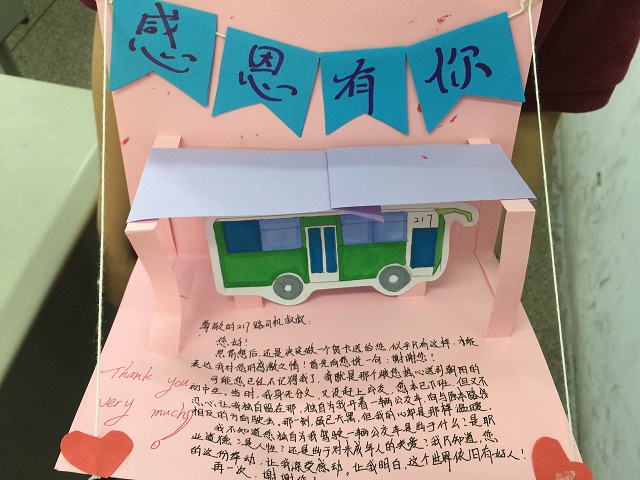 感恩有你
217
尊敬的217路司机叔叔:
您好!
思前想后,还是决定做一个贺卡送给您,似乎只有这样,才能
表达我对您的感激之情!首先向您说一句:谢谢您!
可能您已经不记得我了,我就是那个被您热心送到朝阳的
初中生。当时,我身无分文,又没赶上公交,您本已下班,但又不
忍心让我独自留在那,独自为我开着一辆公交车,向与原本路线
相反的方向驶去,那一刻,虽已天黑,但我的心却是那样温暖,
我不知道您独自为我驾驶一辆公交车是出于什么:是职
业道德?是人性?还是出于对未成年人的关爱?我只知道,您
的这份举动,让我深受感动。让我明白,这个世界依旧有好人!
再一次,谢谢您!
Thank you
very much